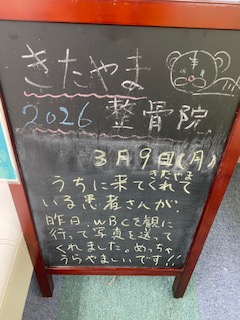 きたやま
2026 整骨院
3月9日(月)
きたやま
うちに来てくれて
いる患者さんが、
昨日、WBCを観に
行って写真を送って
くれました。めっちゃ
うらやましいです!!